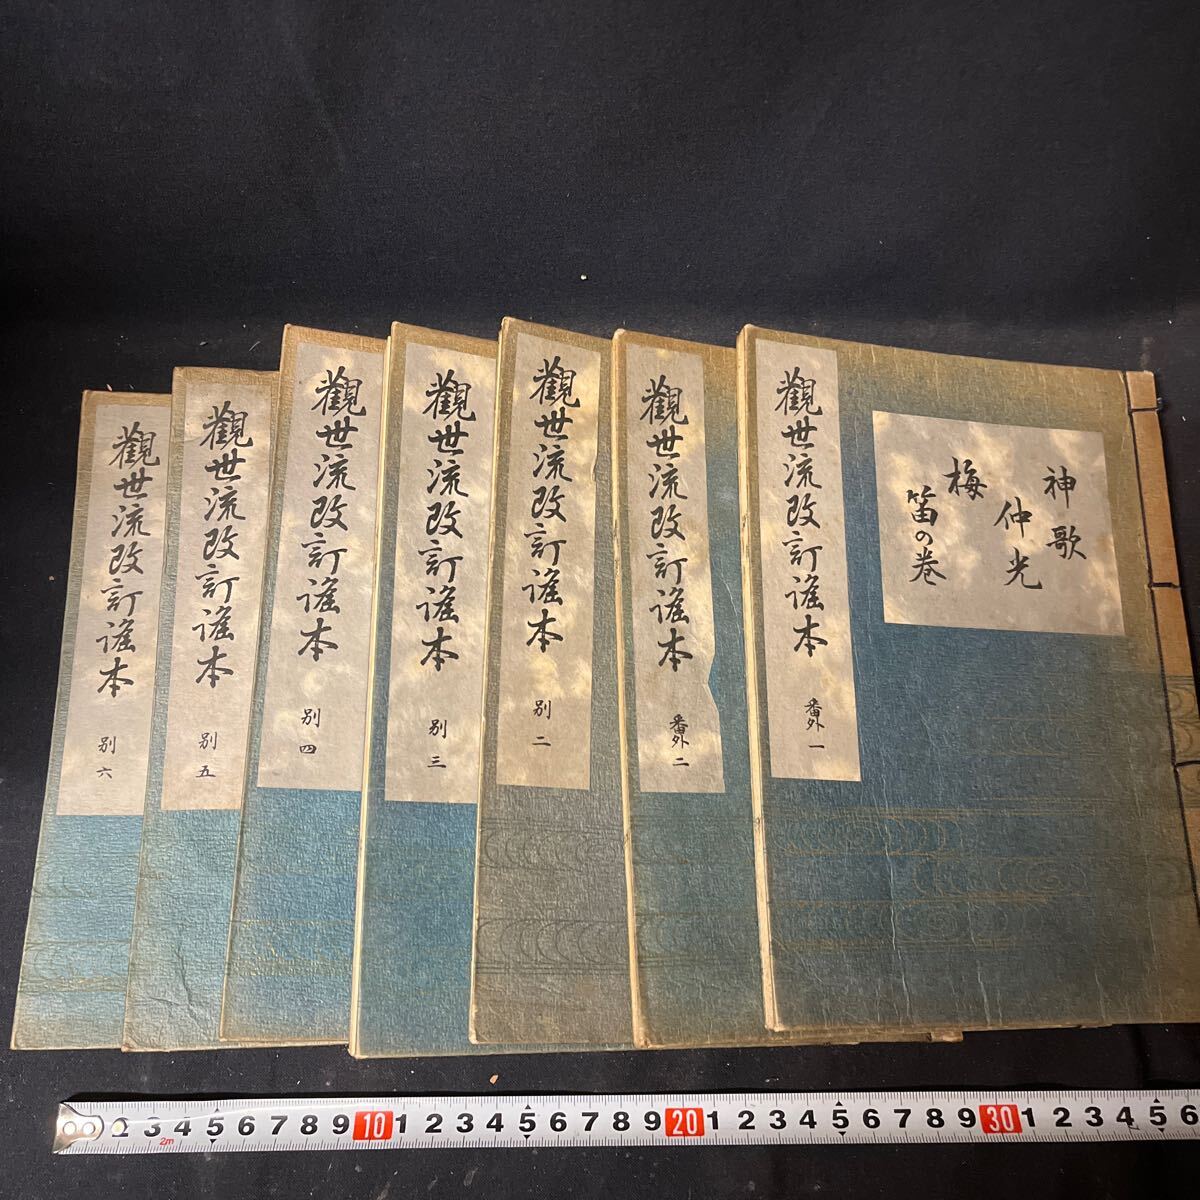 觀世流改訂謠本 番外 一
神歌
仲光
梅
笛の巻
觀世流改訂謠本 番外 二
觀世流改訂謠本 別 二
觀世流改訂謠本 別 三
觀世流改訂謠本 別 四
觀世流改訂謠本 別 五
觀世流改訂謠本 別 六
2 3 4 5 6 7 8 9 10 1 2 3 4 5 6 7 8 9 20 1 2 3 4 5 6 7 8 9 30 1 2 3 4 5 6
2m